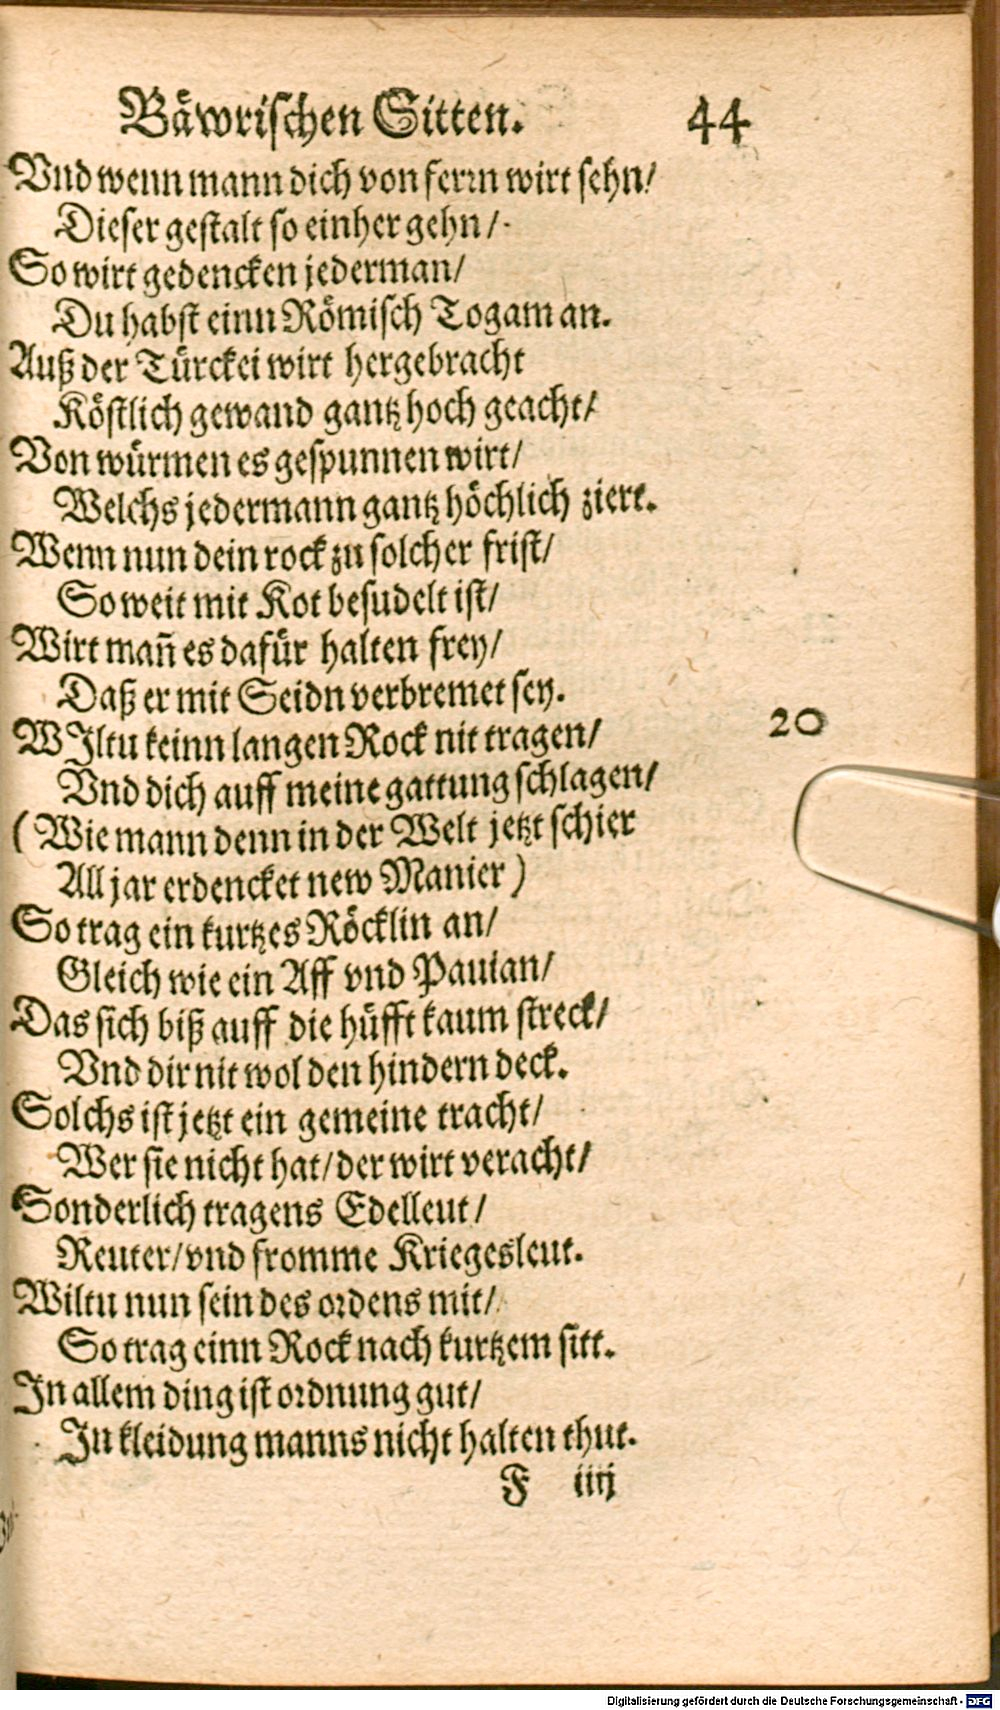 Bäwrischen Sitten. 44
Vnd wenn mann dich von ferrn wirt sehn/
Dieser gestalt so einher gehn/
So wirt gedencken jederman/
Du habst einn Römisch Togam an.
Auß der Türckei wirt hergebracht
Köstlich gewand gantz hoch geacht/
Von würmen es gespunnen wirt/
Welchs jedermann gantz höchlich ziert.
Wenn nun dein rock zu solcher frist/
So weit mit Kot besudelt ist/
Wirt mañ es dafür halten frey/
Daß er mit Seidn verbremet sey.
WIltu keinn langen Rock nit tragen/ 20
Vnd dich auff meine gattung schlagen/
(Wie mann denn in der Welt jetzt schier
All jar erdencket new Manier)
So trag ein kurtzes Röcklin an/
Gleich wie ein Aff vnd Pauian/
Das sich biß auff die hüfft kaum streck/
Vnd dir nit wol den hindern deck.
Solchs ist jetzt ein gemeine tracht/
Wer sie nicht hat/ der wirt veracht/
Sonderlich tragens Edelleut/
Reuter/ vnd fromme Kriegesleut.
Wiltu nun sein des ordens mit/
So trag einn Rock nach kurtzem sitt.
In allem ding ist ordnung gut/
In kleidung manns nicht halten thut.
F iiij
Digitalisierung gefördert durch die Deutsche Forschungsgemeinschaft - DFG